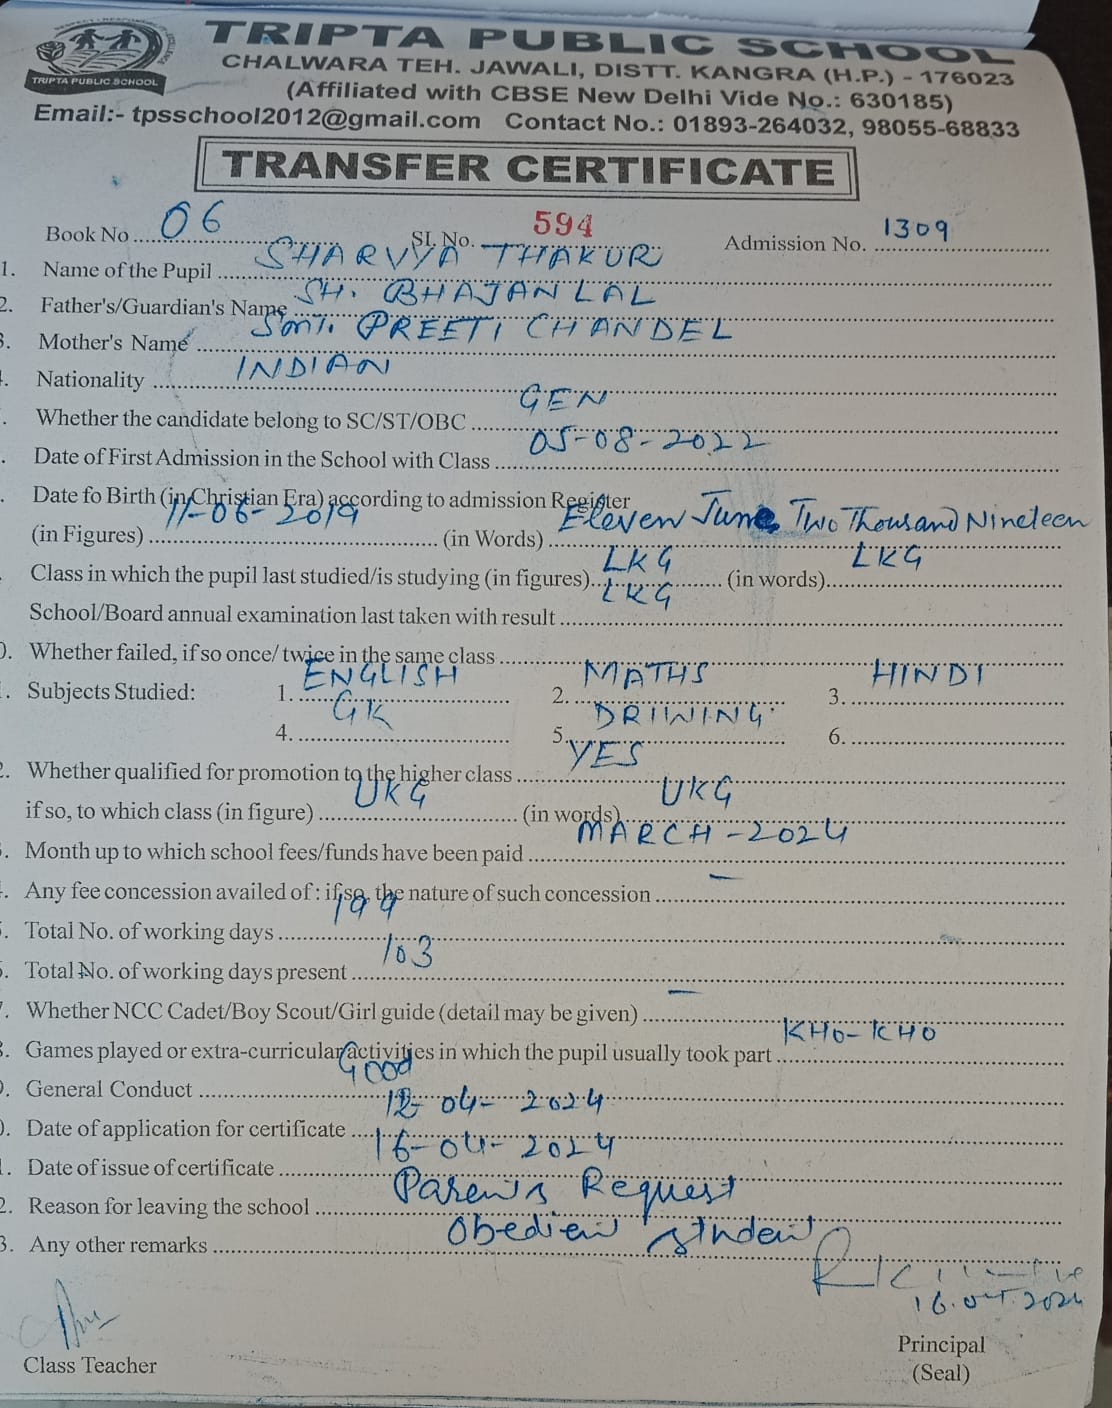 TRIPTA PUBLIC SCHOOL
TRIPTA PUBLIC SCHOOL
CHALWARA TEH. JAWALI, DISTT. KANGRA (H.P.) - 176023
(Affiliated with CBSE New Delhi Vide No.: 630185)
Email:- tpsschool2012@gmail.com Contact No.: 01893-264032, 98055-68833
TRANSFER CERTIFICATE
Book No 06 Sl. No. 594 Admission No. 1309
1. Name of the Pupil SHARVYA THAKUR
2. Father's/Guardian's Name SH. BHAJAN LAL
3. Mother's Name Smt. PREETI CHANDEL
. Nationality INDIAN
. Whether the candidate belong to SC/ST/OBC GEN
. Date of First Admission in the School with Class 05-08-2022
. Date fo Birth (in Christian Era) according to admission Register
(in Figures) 11-06-2019 (in Words) Eleven June Two Thousand Nineteen
. Class in which the pupil last studied/is studying (in figures) LKG (in words) LKG
School/Board annual examination last taken with result LKG
0. Whether failed, if so once/ twice in the same class
. Subjects Studied: 1. ENGLISH 2. MATHS 3. HINDI
4. GK 5. DRIWING 6.
2. Whether qualified for promotion to the higher class YES
if so, to which class (in figure) UKG (in words) UKG
. Month up to which school fees/funds have been paid MARCH-2024
. Any fee concession availed of : if so, the nature of such concession —
. Total No. of working days 199
. Total No. of working days present 103
. Whether NCC Cadet/Boy Scout/Girl guide (detail may be given) —
. Games played or extra-curricular activities in which the pupil usually took part KHO-KHO
. General Conduct Good
. Date of application for certificate 12-04-2024
. Date of issue of certificate 16-04-2024
2. Reason for leaving the school Parents Request
3. Any other remarks Obedient student
Class Teacher
Principal
(Seal)